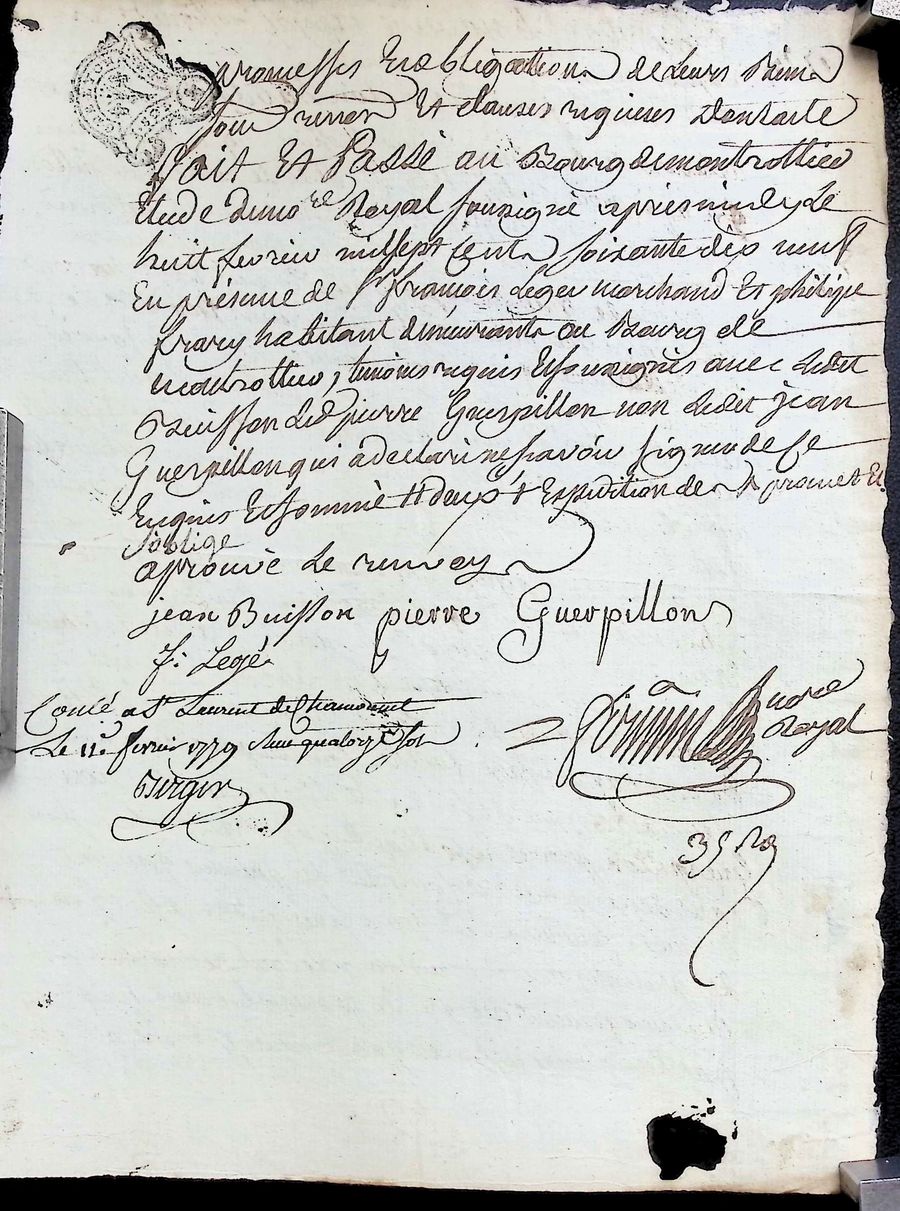 promesses et obligation de leurs biens
sous renon et clauses requises dont acte
fait et passé au Bourg de montrottier
étude du no.re Royal soussigné apres midy le
huit fevrier mil sept cents soixante dix neuf
En présence de Sr françois Leger marchand et philipe
frary habitant demeurants au Bourg de
montrottier, temoins requis et soussignés avec ledit
Buisson led pierre Guerpillon non ledit jean
Guerpillon qui a declaré ne scavoir signer de ce
Enquis et sommé Expedition de promet et
s'oblige
aprouvé le renvoy
jean Buisson pierre Guerpillon
f. Legé
Conlé a St Laurent de Chamousset
Le 11e fevrier 1779 quatorze sols
Berger
nore
Royal